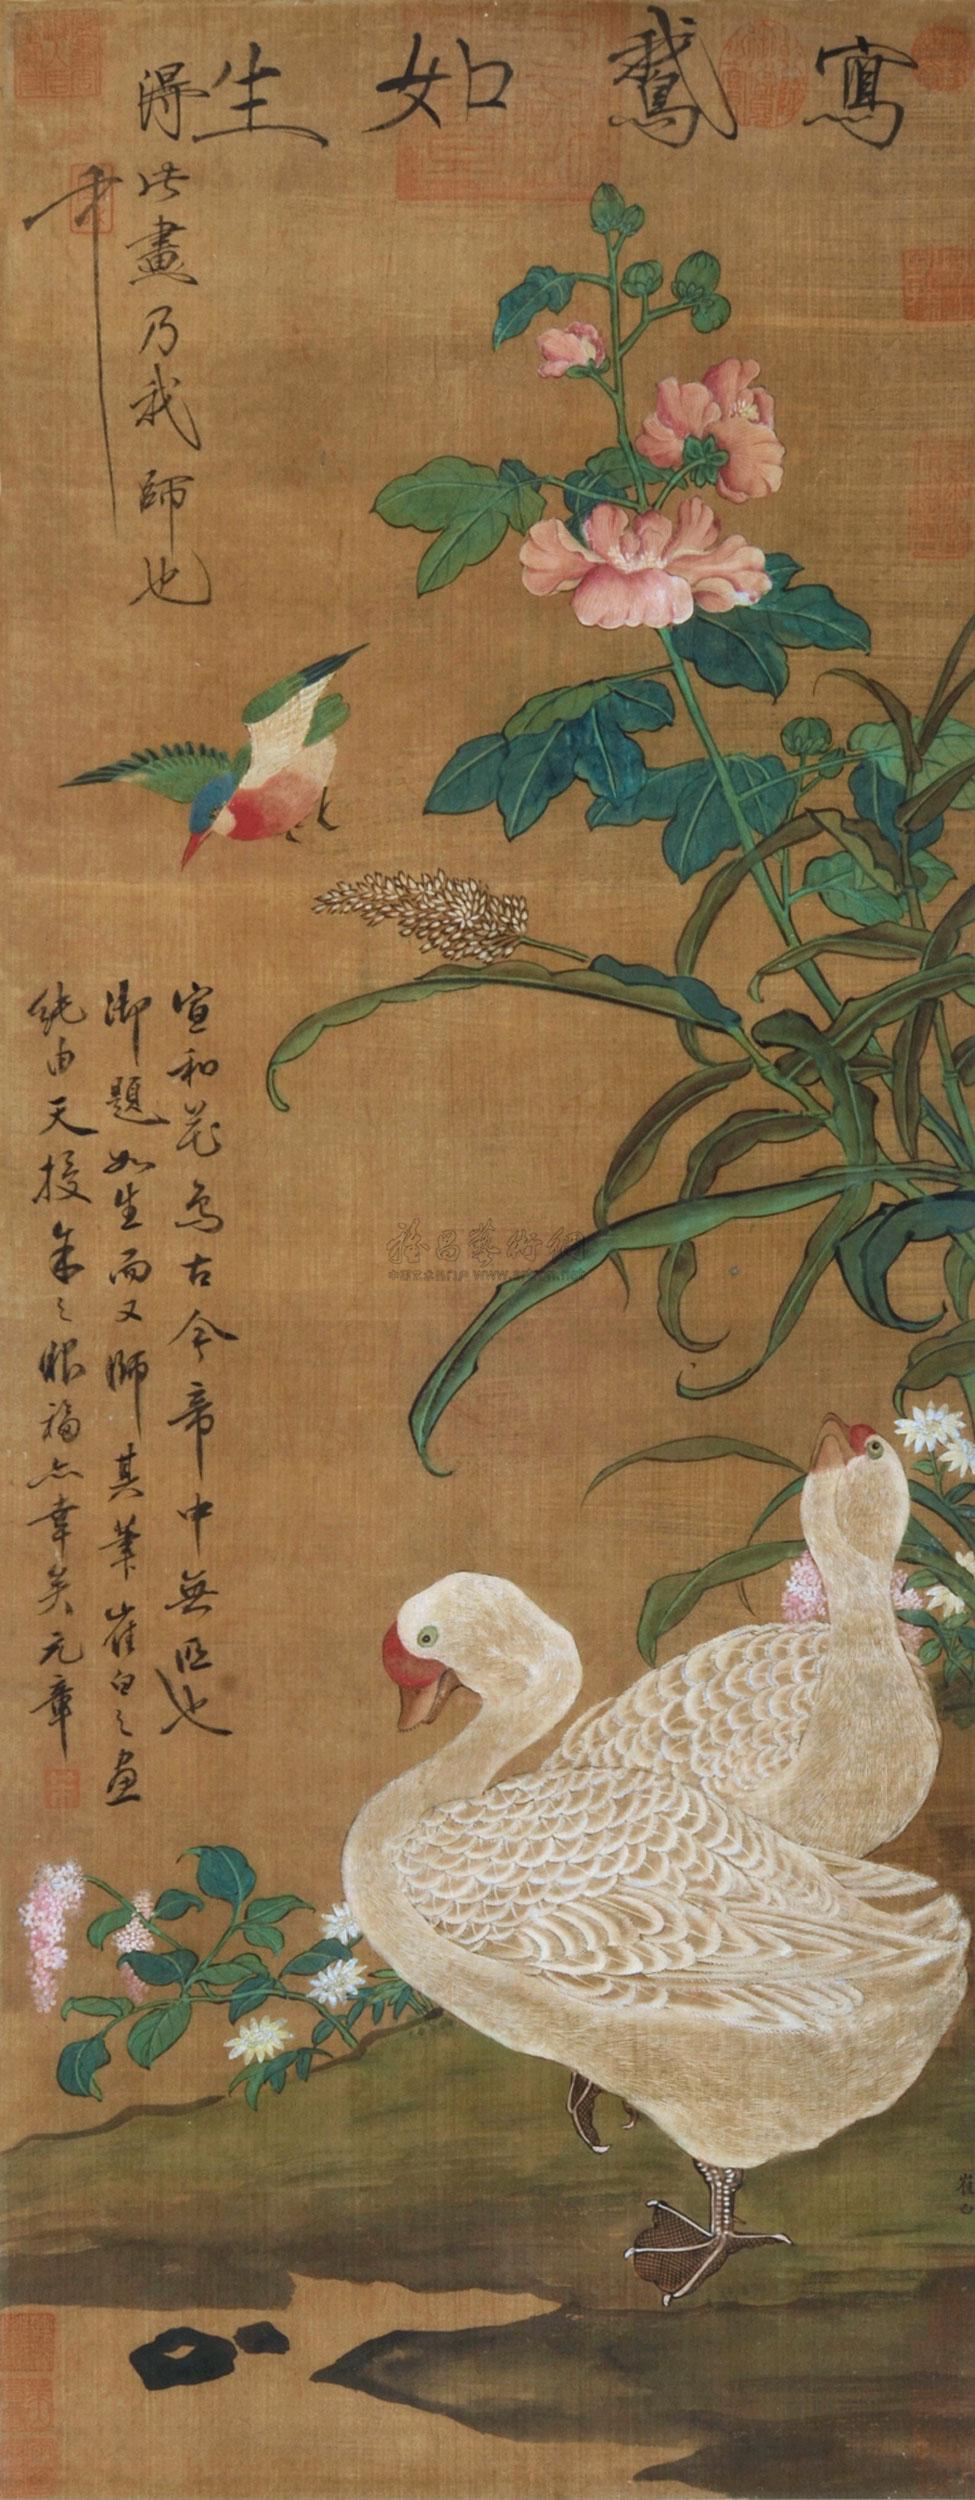 寫鵞如生
得此畫乃我師也
宣和花鳥古今帝中無匹也
御題如生而又師其筆崔白之畫
純由天授余之眼福亦幸矣元章
崔白